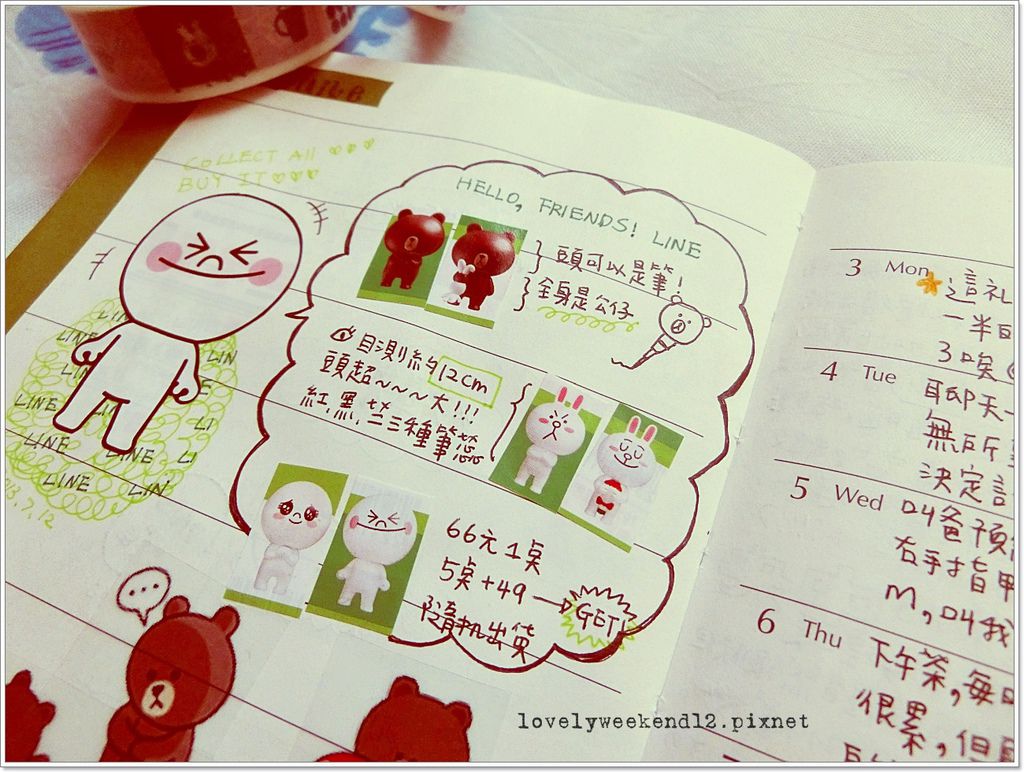 COLLECT All
BUY IT
HELLO, FRIENDS! LINE
頭可以是筆!
全身是公仔
目測約12cm
頭超~~~大!!!
紅.黑.藍三種筆蕊
66元1點
5點+49→GET!
隨機出貨
LINE
LINE
LINE
LINE
LINE
3 Mon
這礼
一半
3唉
4 Tue
聊天
無所
決定
5 Wed
叫爸預
右手指甲
M,叫我
6 Thu
下午茶,每
很累,但
lovelyweekend12.pixnet